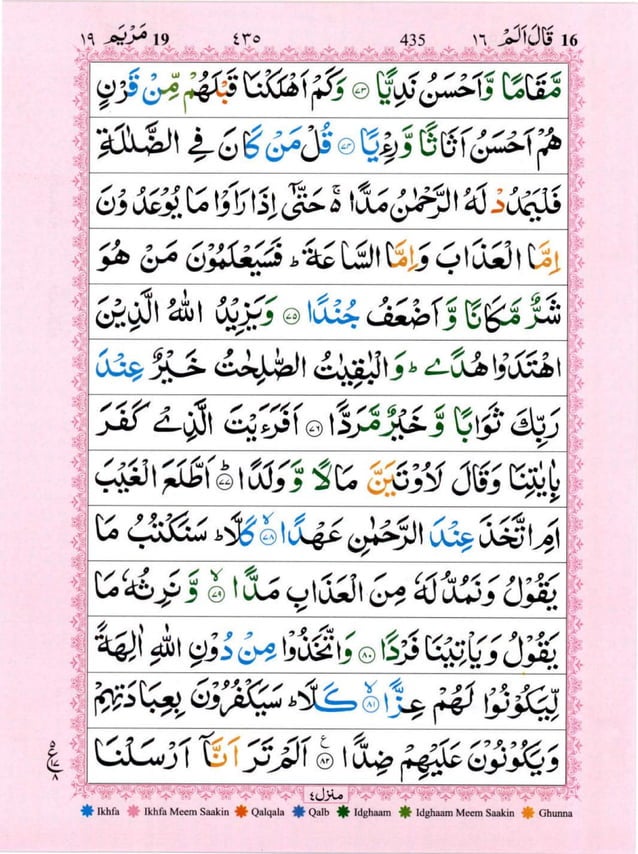 ١٩ مَرْيَم 19 ٤٣٥ 435 ١٦ قَالَ اَلَمْ 16
مَّقَامًا وَّاَحْسَنُ نَدِيًّا ﴿۷۳﴾ وَكَمْ اَهْلَكْنَا قَبْلَهُمْ مِّنْ قَرْنٍ
هُمْ اَحْسَنُ اَثَاثًا وَّرِءْيًا ﴿۷۴﴾ قُلْ مَنْ كَانَ فِي الضَّلٰلَةِ
فَلْيَمْدُدْ لَهُ الرَّحْمٰنُ مَدًّا ۚ حَتّٰٓى اِذَا رَاَوْا مَا يُوْعَدُوْنَ
اِمَّا الْعَذَابَ وَاِمَّا السَّاعَةَ ؕ فَسَيَعْلَمُوْنَ مَنْ هُوَ
شَرٌّ مَّكَانًا وَّاَضْعَفُ جُنْدًا ﴿۷۵﴾ وَيَزِيْدُ اللّٰهُ الَّذِيْنَ
اهْتَدَوْا هُدًى ؕ وَالْبٰقِيٰتُ الصّٰلِحٰتُ خَيْرٌ عِنْدَ
رَبِّكَ ثَوَابًا وَّخَيْرٌ مَّرَدًّا ﴿۷۶﴾ اَفَرَءَيْتَ الَّذِيْ كَفَرَ
بِاٰيٰتِنَا وَقَالَ لَاُوْتَيَنَّ مَالًا وَّوَلَدًا ﴿۷۷﴾ؕ اَطَّلَعَ الْغَيْبَ
اَمِ اتَّخَذَ عِنْدَ الرَّحْمٰنِ عَهْدًا ﴿۷۸﴾ۙ كَلَّا ؕ سَنَكْتُبُ مَا
يَقُوْلُ وَنَمُدُّ لَهٗ مِنَ الْعَذَابِ مَدًّا ﴿۷۹﴾ۙ وَّنَرِثُهٗ مَا
يَقُوْلُ وَيَاْتِيْنَا فَرْدًا ﴿۸۰﴾ وَاتَّخَذُوْا مِنْ دُوْنِ اللّٰهِ اٰلِهَةً
لِّيَكُوْنُوْا لَهُمْ عِزًّا ﴿۸۱﴾ۙ كَلَّا ؕ سَيَكْفُرُوْنَ بِعِبَادَتِهِمْ
وَيَكُوْنُوْنَ عَلَيْهِمْ ضِدًّا ﴿۸۲﴾ۧ اَلَمْ تَرَ اَنَّاۤ اَرْسَلْنَا
٥ ع ١٧ ٨
منزل٤
Ikhfa Ikhfa Meem Saakin Qalqala Qalb Idghaam Idghaam Meem Saakin Ghunna